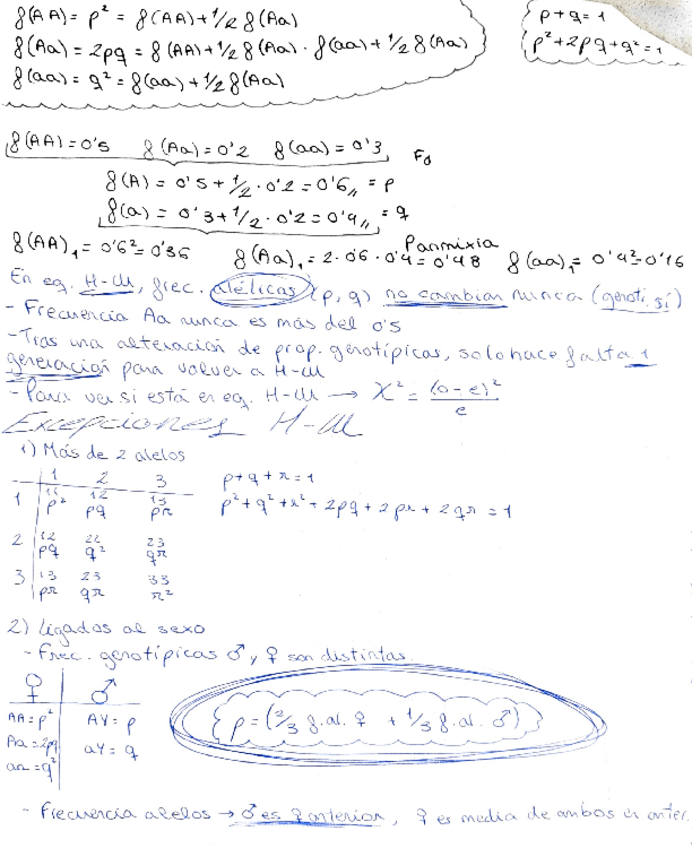 f(AA) = p² = f(AA) + 1/2 f(Aa)
f(Aa) = 2pq = f(AA) + 1/2 f(Aa) · f(aa) + 1/2 f(Aa)
f(aa) = q² = f(aa) + 1/2 f(Aa)
p + q = 1
p² + 2pq + q² = 1
f(AA) = 0'5 f(Aa) = 0'2 f(aa) = 0'3 F0
f(A) = 0'5 + 1/2 · 0'2 = 0'6,, = p
f(a) = 0'3 + 1/2 · 0'2 = 0'4,, = q
Panmixia
f(AA)₁ = 0'6² = 0'36 f(Aa)₁ = 2 · 0'6 · 0'4 = 0'48 f(aa)₁ = 0'4² = 0'16
En eq. H-W, frec. alélicas (p, q) no cambian nunca (genotí. sí)
- Frecuencia Aa nunca es más del 0'5
- Tras una alteración de prop. genotípicas, solo hace falta 1
generación para volver a H-W
- Para ver si está en eq. H-W → X² = (o - e)² / e
Excepciones H-W
1) Más de 2 alelos
1 2 3
1 11 p² 12 pq 13 pr
p + q + r = 1
p² + q² + r² + 2pq + 2pr + 2qr = 1
2 12 pq 22 q² 23 qr
3 13 pr 23 qr 33 r²
2) Ligados al sexo
- Frec. genotípicas ♂ y ♀ son distintas
♀ ♂
AA = p² AY = p
Aa = 2pq aY = q
aa = q²
p = (2/3 f.al. ♀ + 1/3 f.al. ♂)
- Frecuencia alelos → ♂ es ♀ anterior, ♀ es media de ambos en anter.